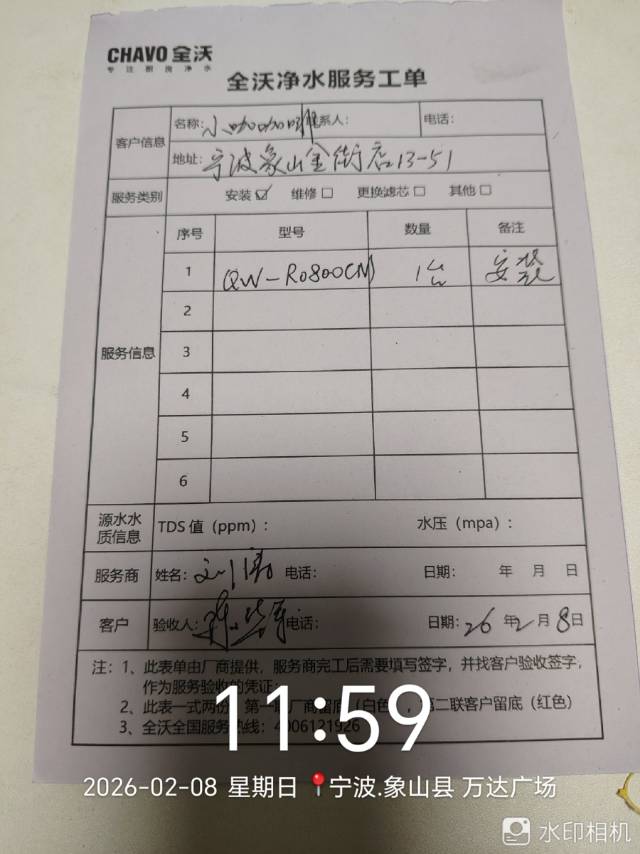 CHAVO 全沃
专注厨房净水
全沃净水服务工单
客户信息
名称：小咖咖啡 联系人： 电话：
地址：宁波象山金街店13-51
服务类别 安装☑ 维修☐ 更换滤芯☐ 其他☐
服务信息
序号 型号 数量 备注
1 QW-R0800CM 1台 安装
2
3
4
5
6
源水水质信息 TDS 值（ppm）： 水压（mpa）：
服务商 姓名： 电话： 日期： 年 月 日
客户 验收人： 电话： 日期：26年2月8日
注：1、此表单由厂商提供，服务商完工后需要填写签字，并找客户验收签字，
作为服务验收的凭证；
2、此表一式两份，第一联厂商留底（白色），第二联客户留底（红色）
3、全沃全国服务热线：4006121926
11:59
2026-02-08 星期日 宁波.象山县 万达广场
水印相机